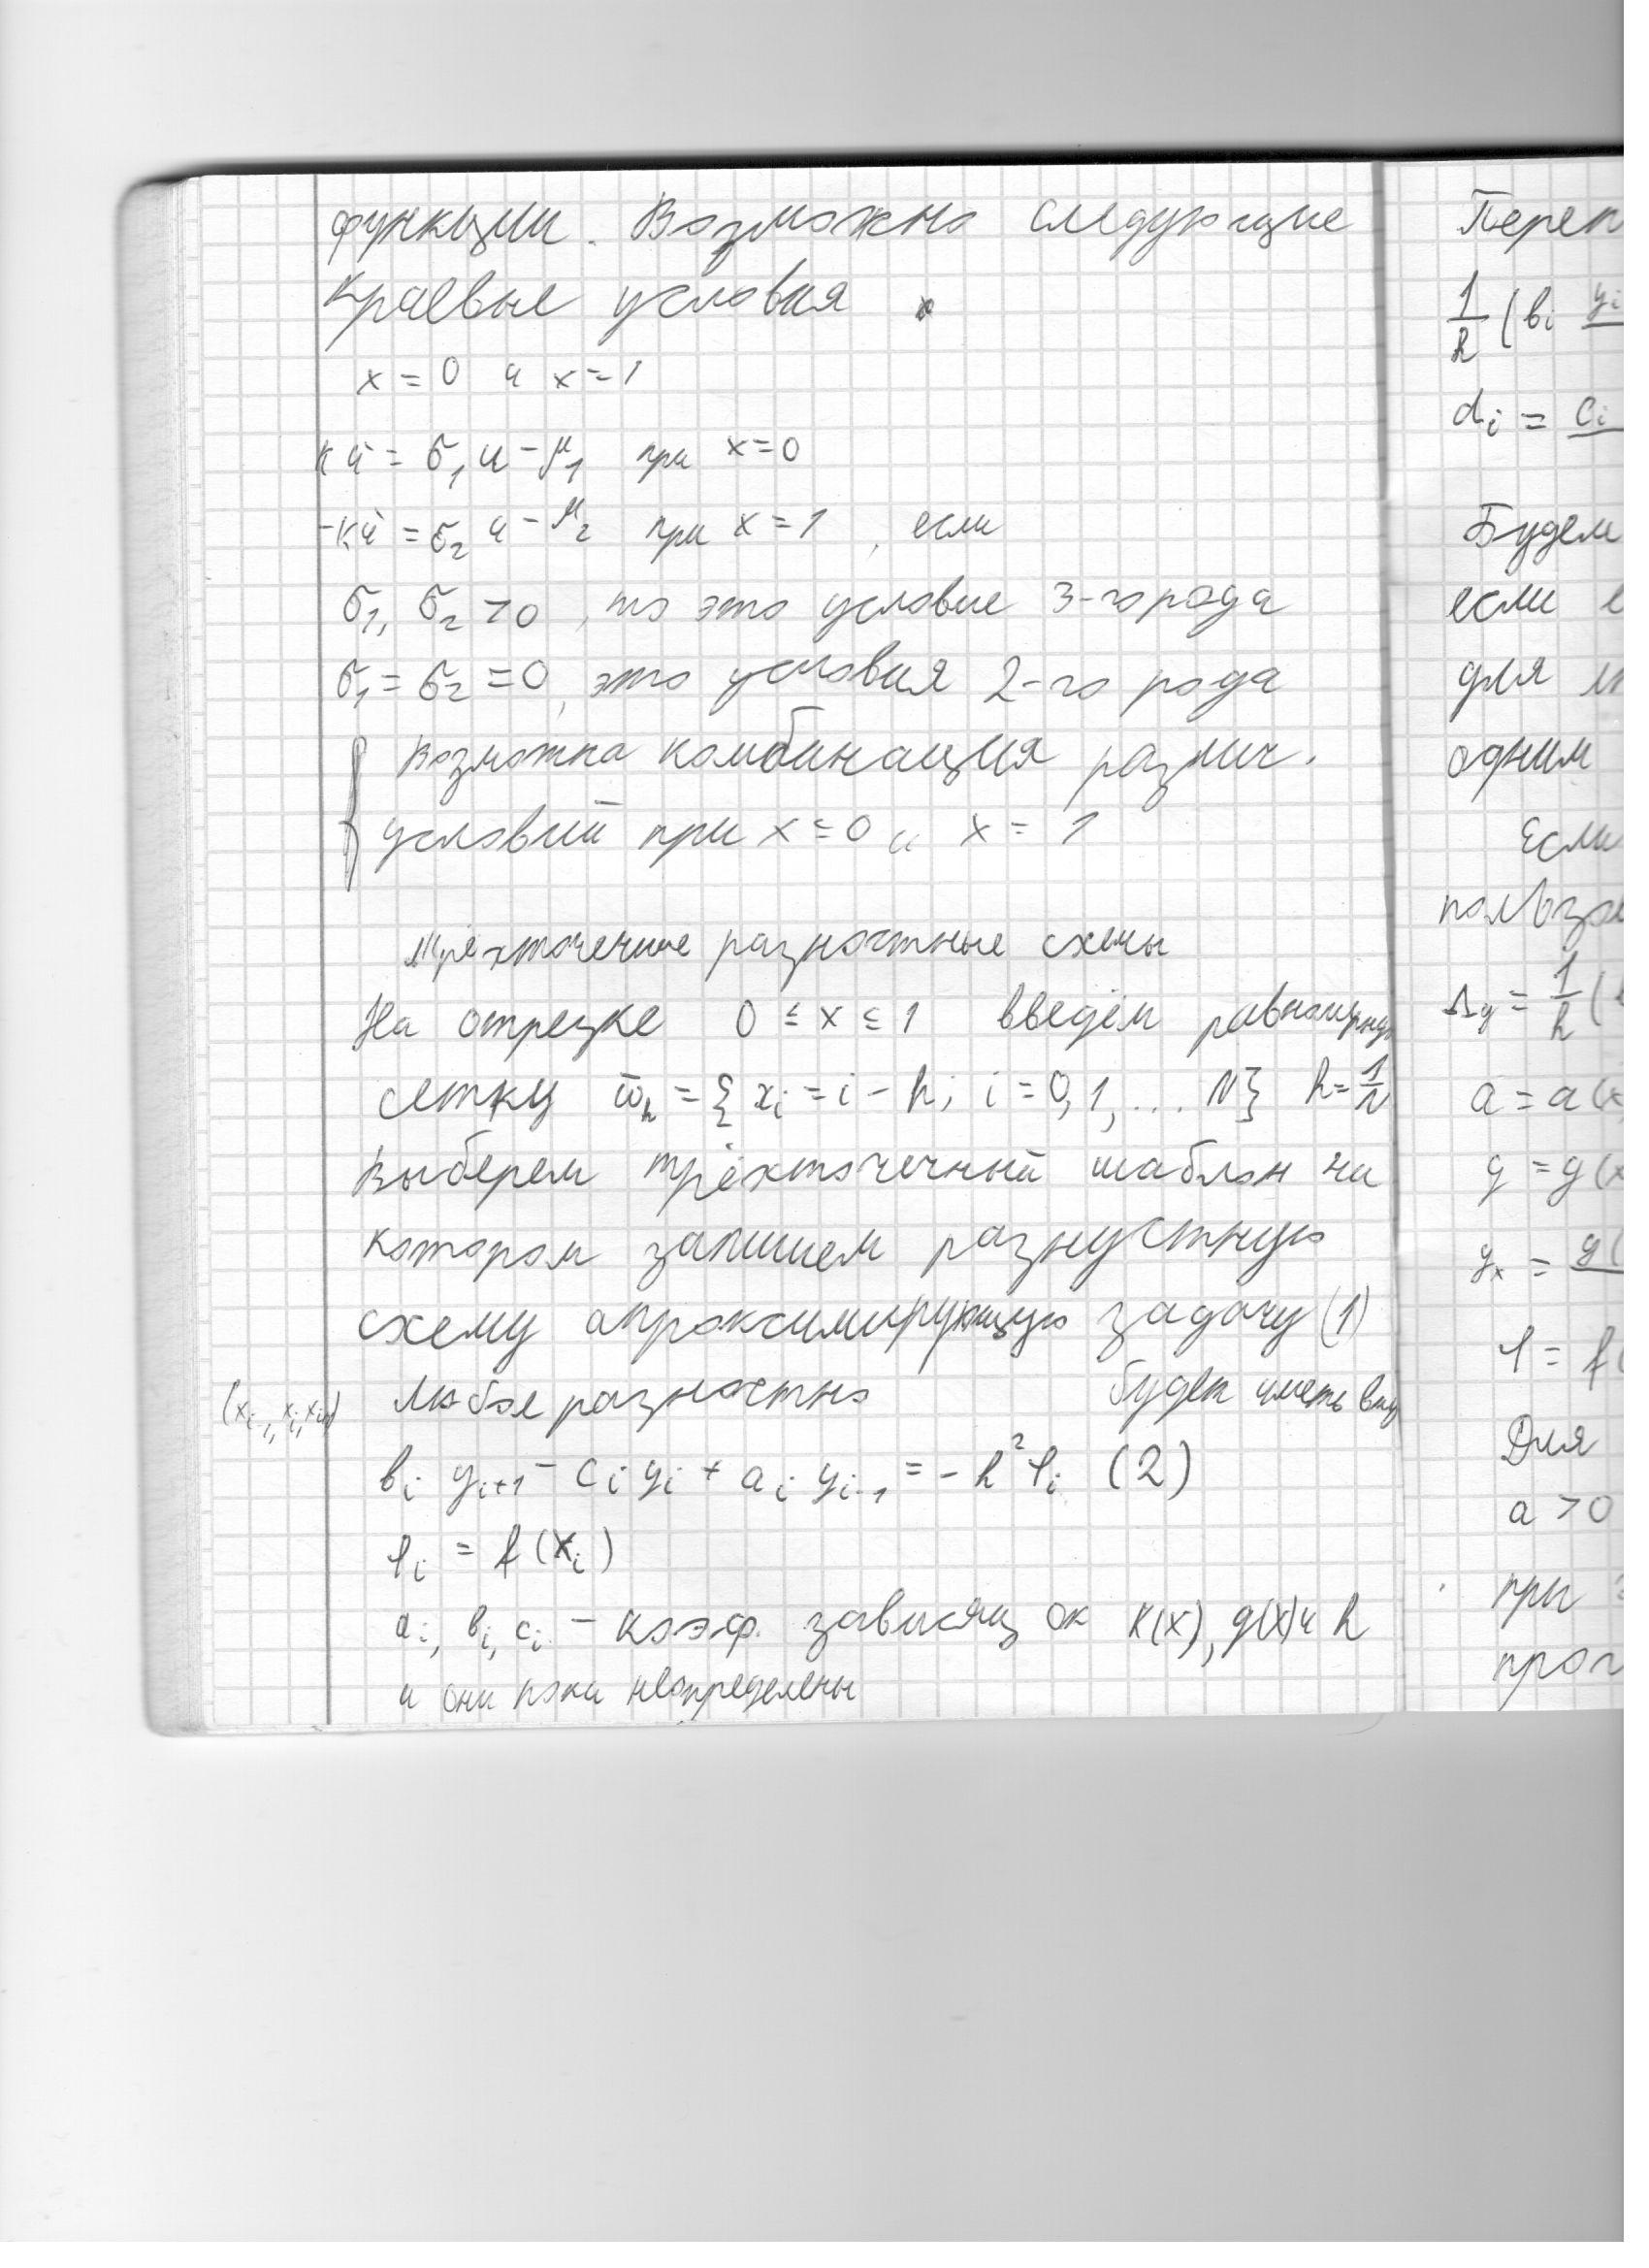 функции. Возможно следующие
краевые условия
x = 0 и x = 1
ku̇ = σ₁ u - μ₁ при x=0
-ku̇ = σ₂ u - μ₂ при x=1, если
σ₁, σ₂ >0, то это условие 3-го рода
σ₁ = σ₂ = 0, это условия 2-го рода
возможна комбинация различ.
условий при x=0 и x = 1
трёхточечные разностные схемы
На отрезке 0 ≤ x ≤ 1 введём равномерную
сетку ω̄ₕ = { xᵢ = i - h; i = 0, 1, ... N} h = 1/N
Выберем трёхточечный шаблон на
котором запишем разнустную
схему апроксимирующую задачу (1)
(xᵢ₋₁, xᵢ, xᵢ₊₁) любое разностно будет иметь вид
bᵢ yᵢ₊₁ - cᵢ yᵢ + aᵢ yᵢ₋₁ = - h² φᵢ (2)
φᵢ = f(xᵢ)
aᵢ, bᵢ, cᵢ - коэф. зависящ от k(x), q(x) и h
и они пока неопределены
Переп
1/h (bᵢ yᵢ
dᵢ = cᵢ
Будем
если
для
одним
Если
пользов
Λy = 1/h (
a = a(x
q = q(x
yₓ = y(
φ = f(
Для
a > 0
при
прог